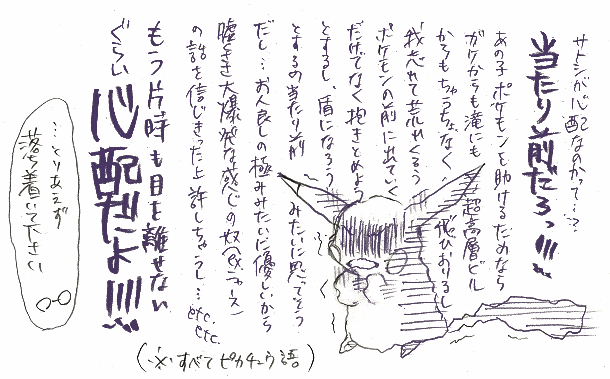 サトシが心配なのかって…?
当たり前だろっ!!!
あの子ポケモンを助けるためなら
ガケからも滝にも超高層ビル
からもちゅうちょなく飛びおりるし
我を忘れて荒れくるう
ポケモンの前に
だけでなく抱きとめよう
とするし、盾になろう
とするの当たり前
みたいに思ってそう
だし…お人良しの極みみたいに優しいから
嘘をつき大爆発な感じの奴(含ニャース)
の話を信じきった上許しちゃうし…etc, etc,
もう片時も目を離せない
ぐらい
心配だよ!!!!
…とりあえず
落ち着いて下さい
(※すべてピカチュウ語)